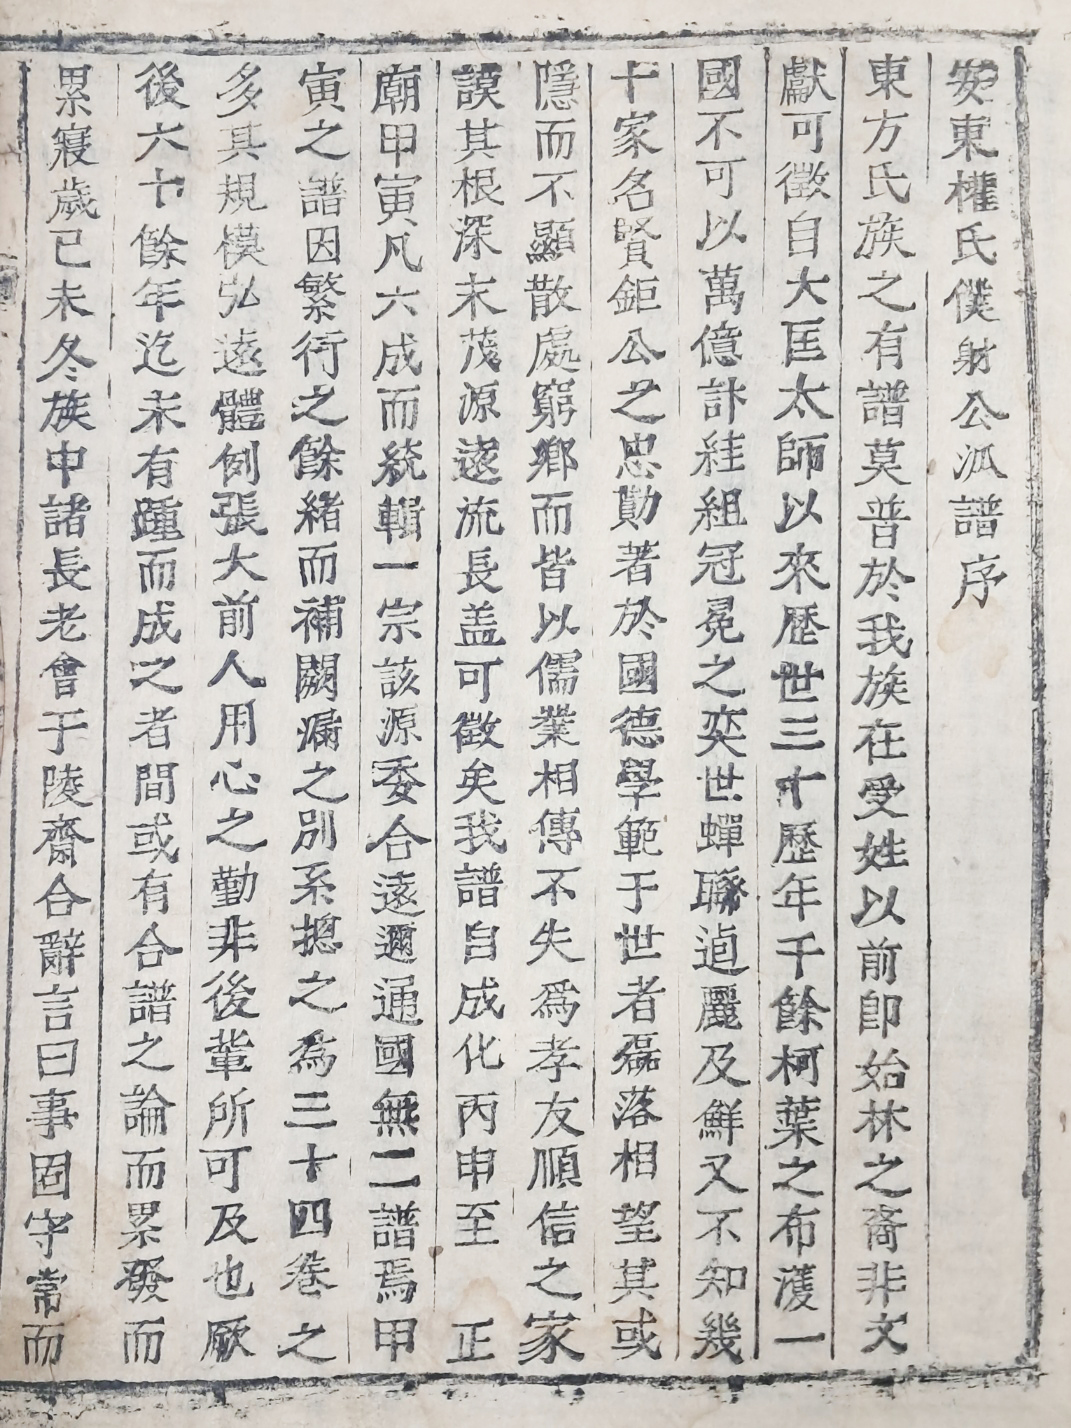 安東權氏僕射公派譜序
東方氏族之有譜莫普於我族在受姓以前卽始林之裔非文
獻可徵自大匡太師以來歷世三十歷年千餘柯葉之布濩一
國不可以萬億計絓組冠冕之奕世蟬聯逈麗及鮮又不知幾
十家名賢鉅公之忠勳著於國德學範于世者磊落相望其或
隱而不顯散處窮鄕而皆以儒業相傳不失爲孝友順信之家
謨其根深末茂源遠流長盖可徵矣我譜自成化丙申至 正
廟甲寅凡六成而統輯一宗該源委合遠邇通國無二譜焉甲
寅之譜因繁衍之餘緖而補闕漏之別系摠之爲三十四卷之
多其規模弘遠體例張大前人用心之勤非後輩所可及也厥
後六十餘年迄未有踵而成之者間或有合譜之論而累發而
累寢歲己未冬族中諸長老會于陵齋合辭言曰事固守常而